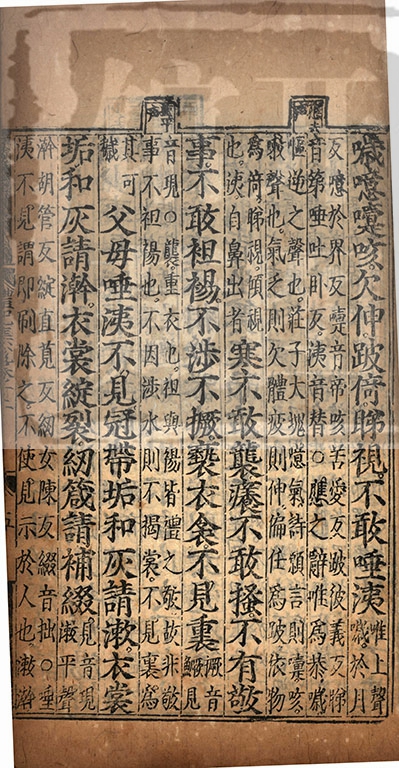 應去聲
重平聲
噦噫嚏咳欠伸跛倚睇視不敢唾洟
唯上聲
噦於月
反噫於界反嚏音帝咳苦愛反跛彼義反睇
音第唾吐臥反洟音替○應之辭唯爲恭噦
嘔逆之聲也莊子大塊噫氣詩願言則嚏咳
嗽聲也氣乏則欠體疲則伸偏任爲跛依物
爲倚睇視傾視
也洟自鼻出者
寒不敢襲癢不敢搔不有敬
事不敢袒裼不涉不撅褻衣衾不見裏
撅音
鱖見
音現○襲重衣也袒與裼皆禮之敬故非敬
事不袒裼也不因涉水則不揭裳不見裏爲
其可
穢
父母唾洟不見冠帶垢和灰請漱衣裳
垢和灰請澣衣裳綻裂紉箴請補綴
見音現
漱平聲
澣胡管反綻直莧反紉女陳反綴音拙○唾
洟不見謂即刷除之不使見示於人也漱澣